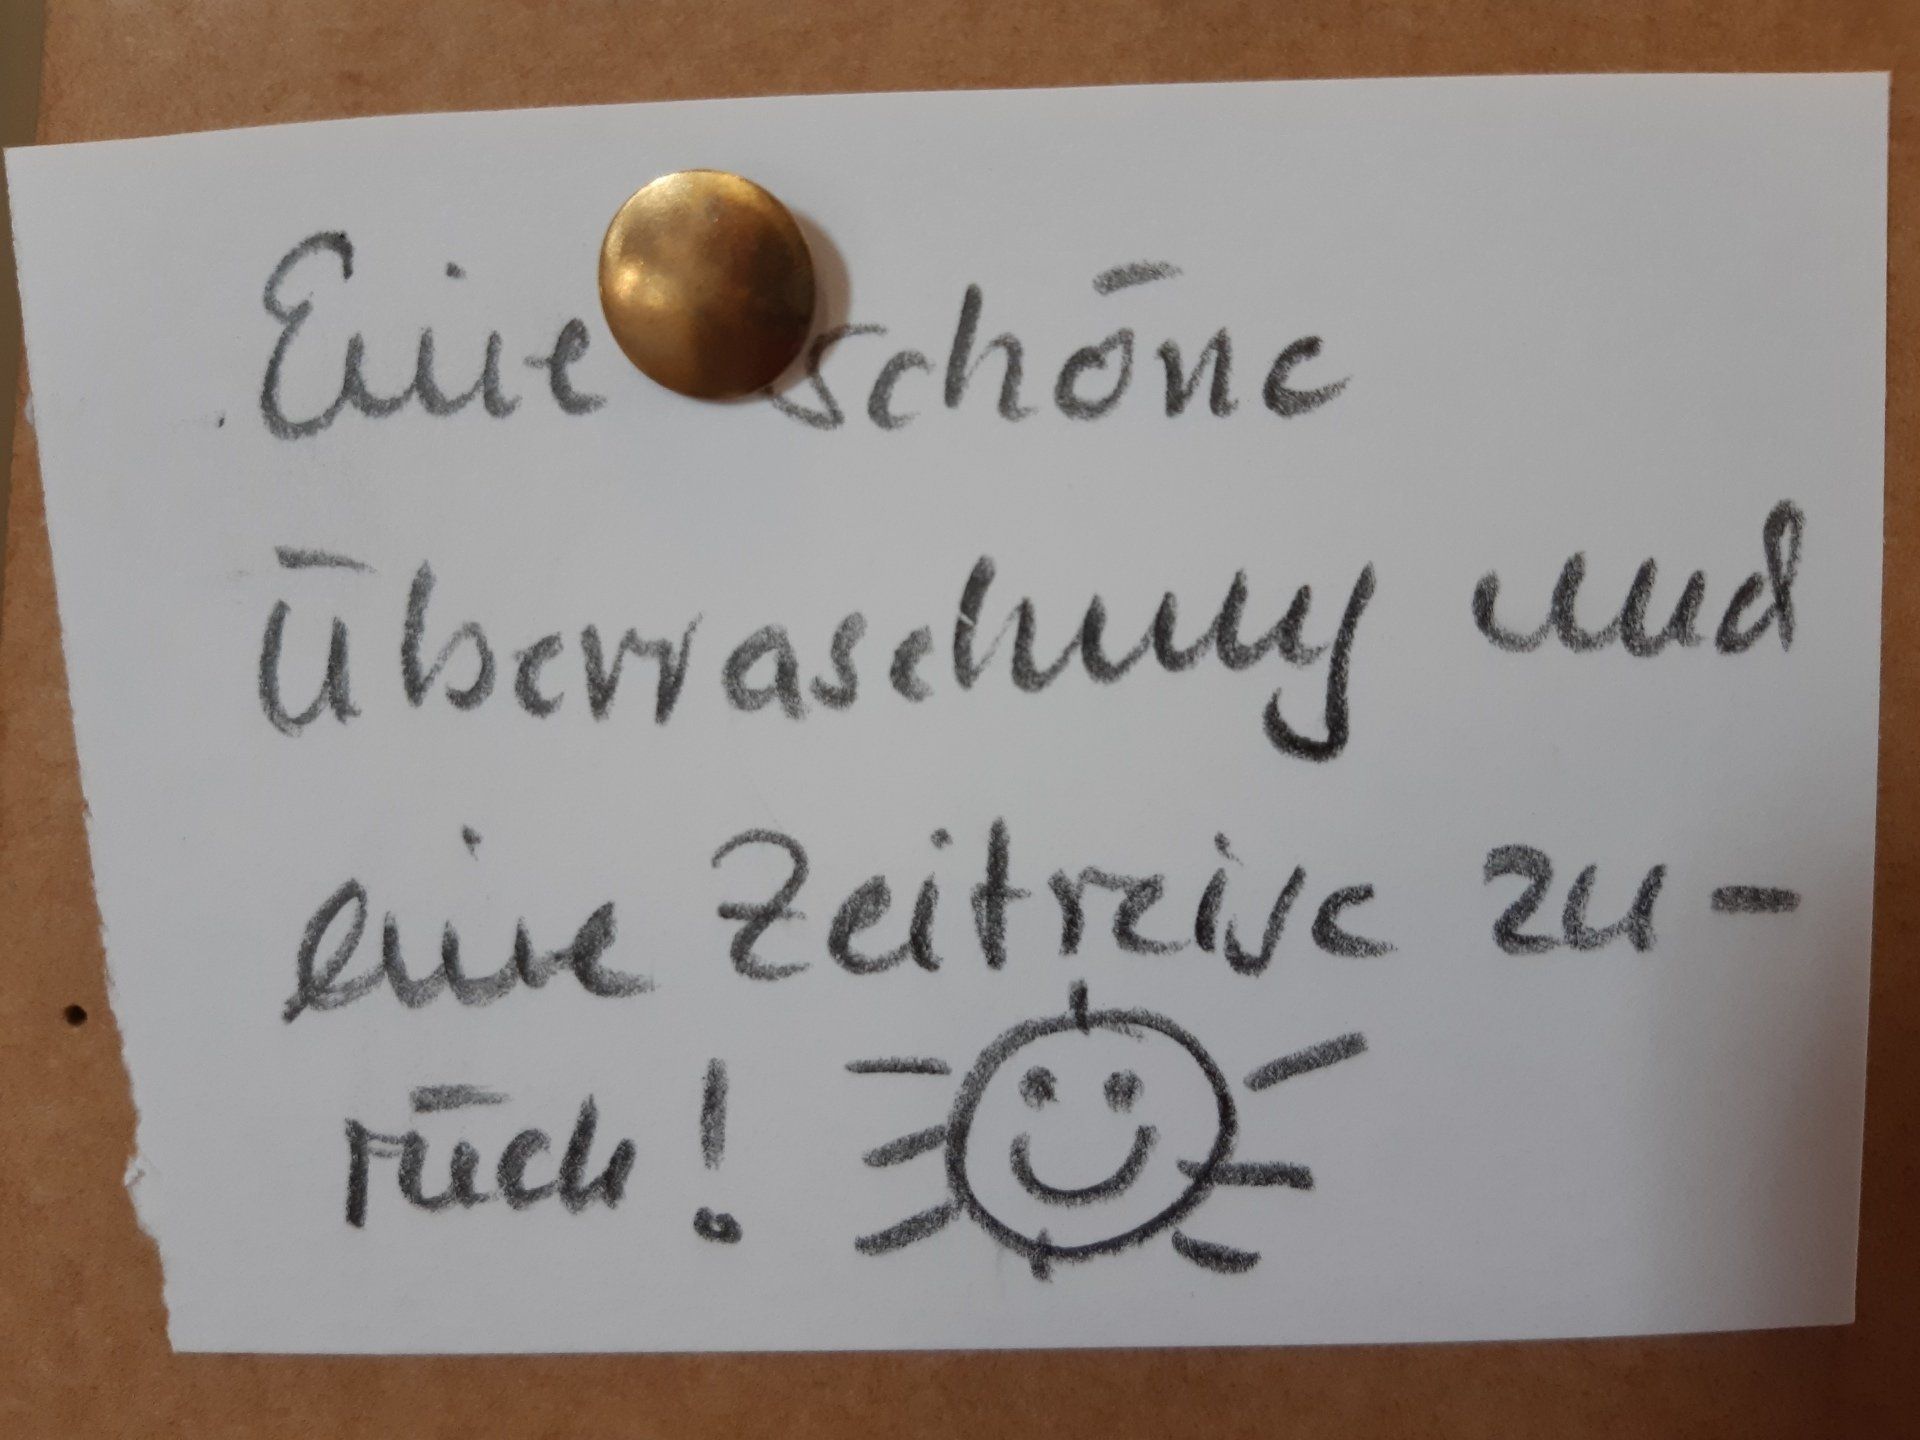 Eine schöne
Überraschung und
eine Zeitreise zu-
rück!